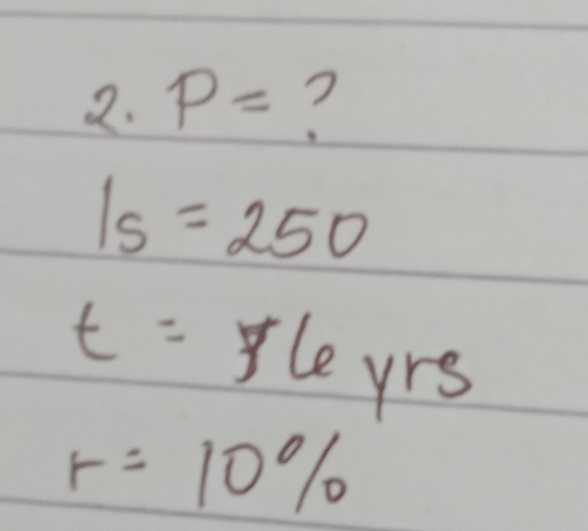 2. P = ?
Is = 250
t = 6 yrs
r = 10%